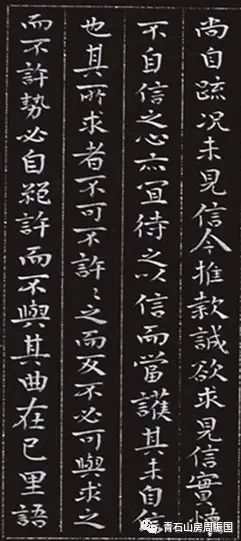 尚自疏况未見信今推款誠欲求見信實懷
不自信之心亦宜待之以信而當護其未自信
也其所求者不可不許〻之而反不必可與求之
而不許勢必自絕許而不與其曲在己里語
青石山房周国